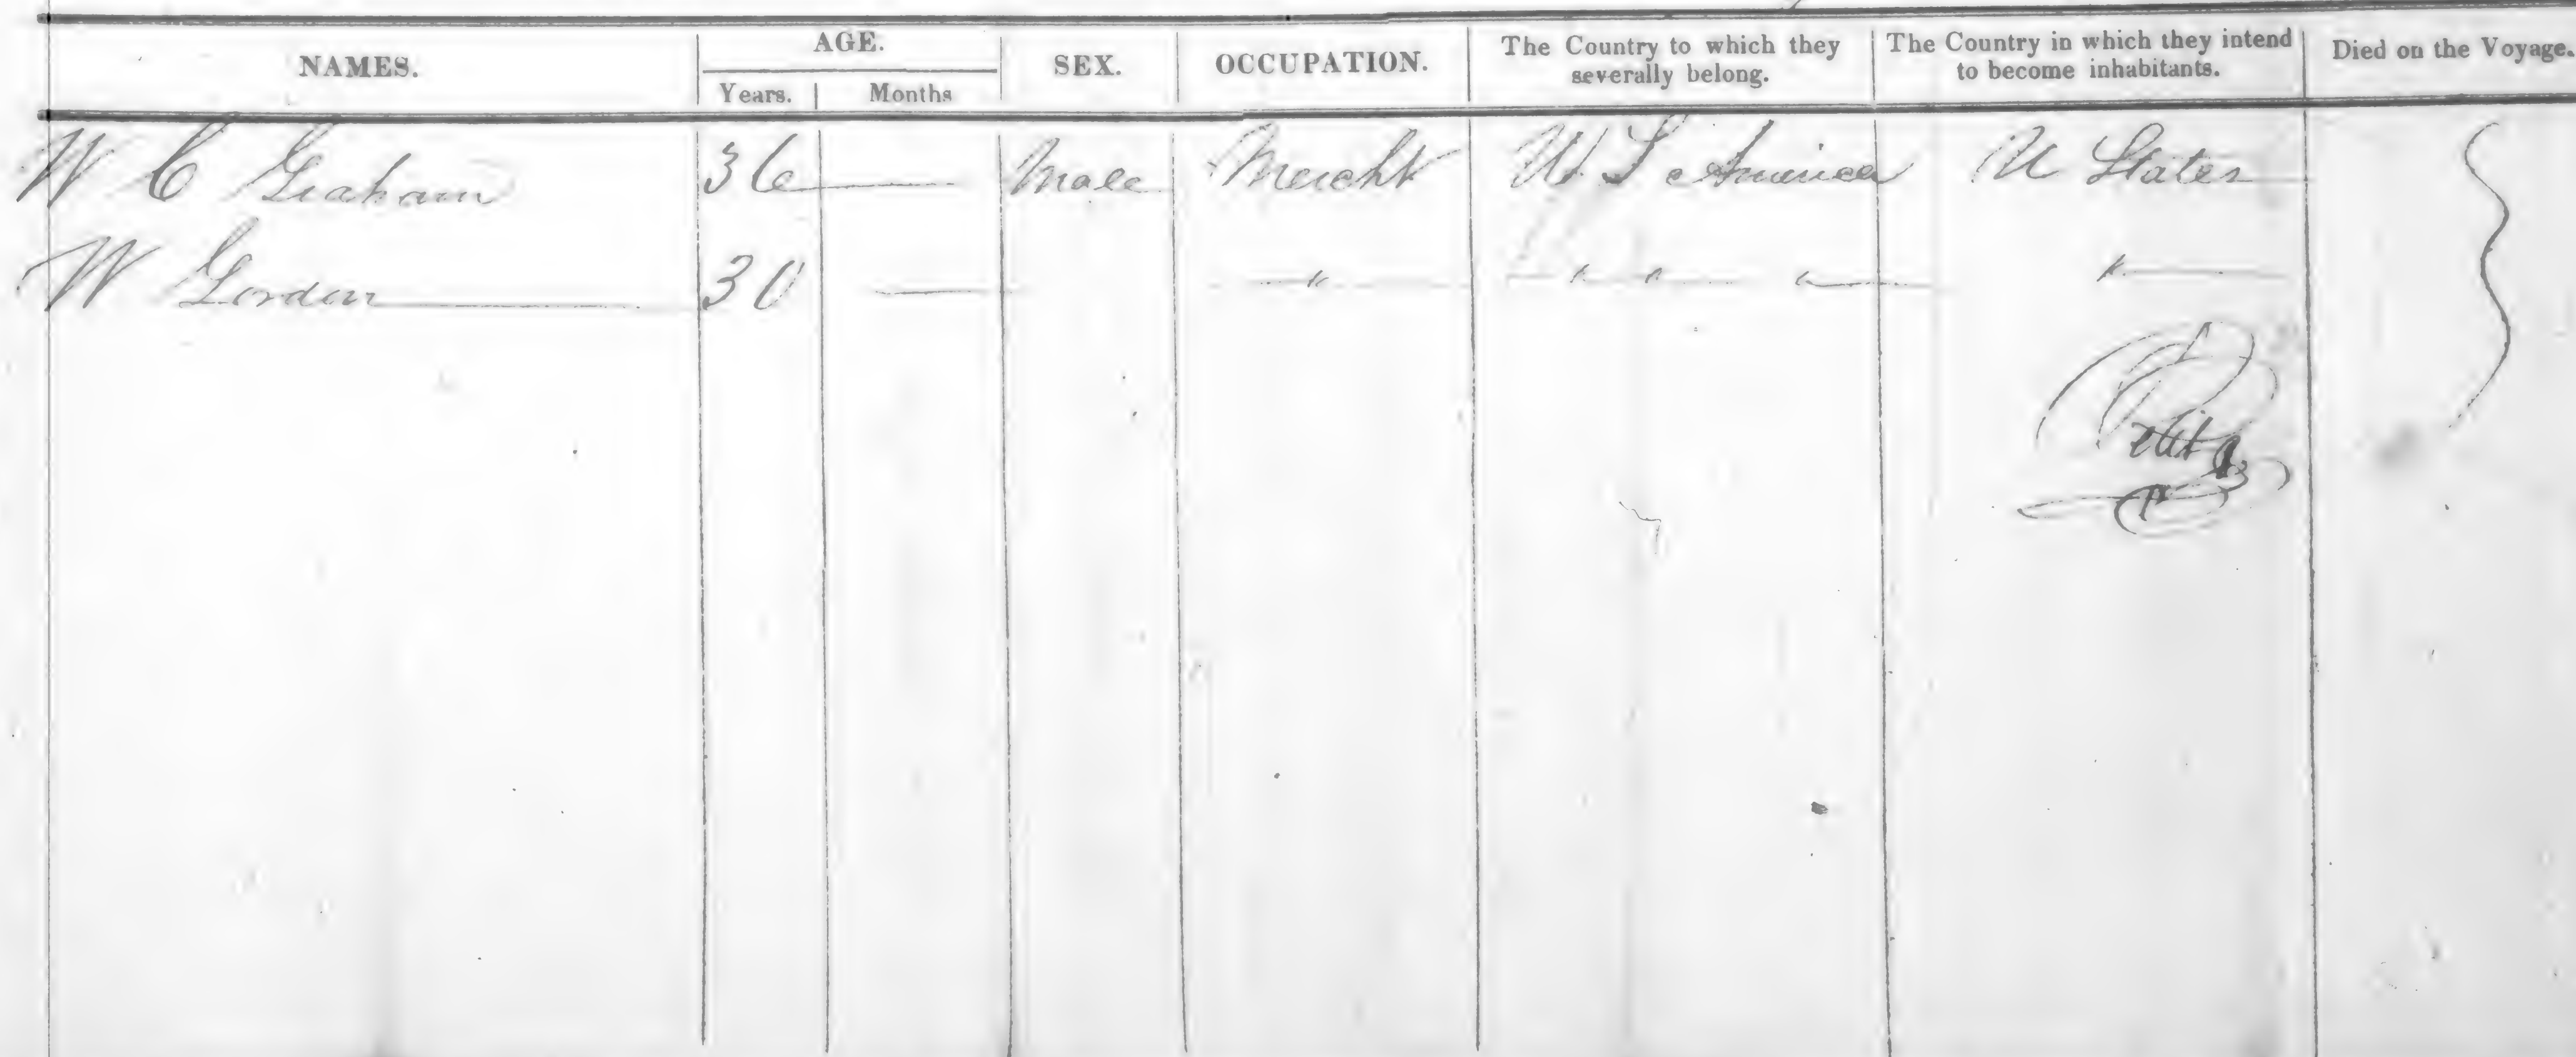 NAMES. AGE. SEX. OCCUPATION. The Country to which they severally belong. The Country in which they intend to become inhabitants. Died on the Voyage.
Years. Months
W C Graham 36 — Male Mercht U S America U States
W Gordon 30 — " " " " "